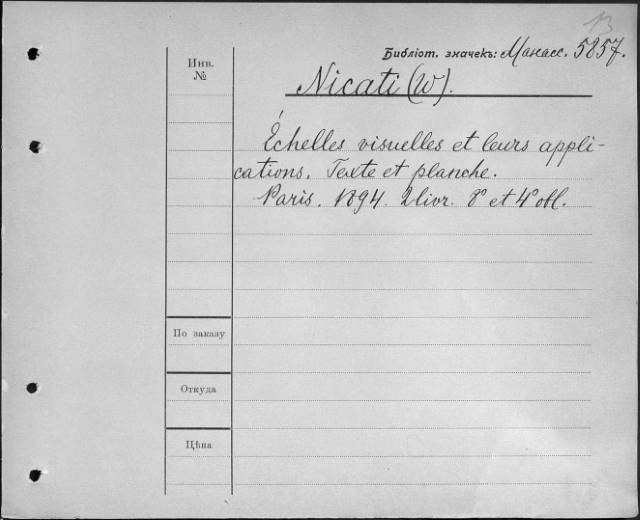 В
Библіот. значекъ: Манасс. 5857.
Инв.
№
Nicati (W).
Échelles visuelles et leurs appli-
cations. Texte et planche.
Paris. 1894. 2 livr. 8° et 4° obl.
По заказу
Откуда
Цѣна